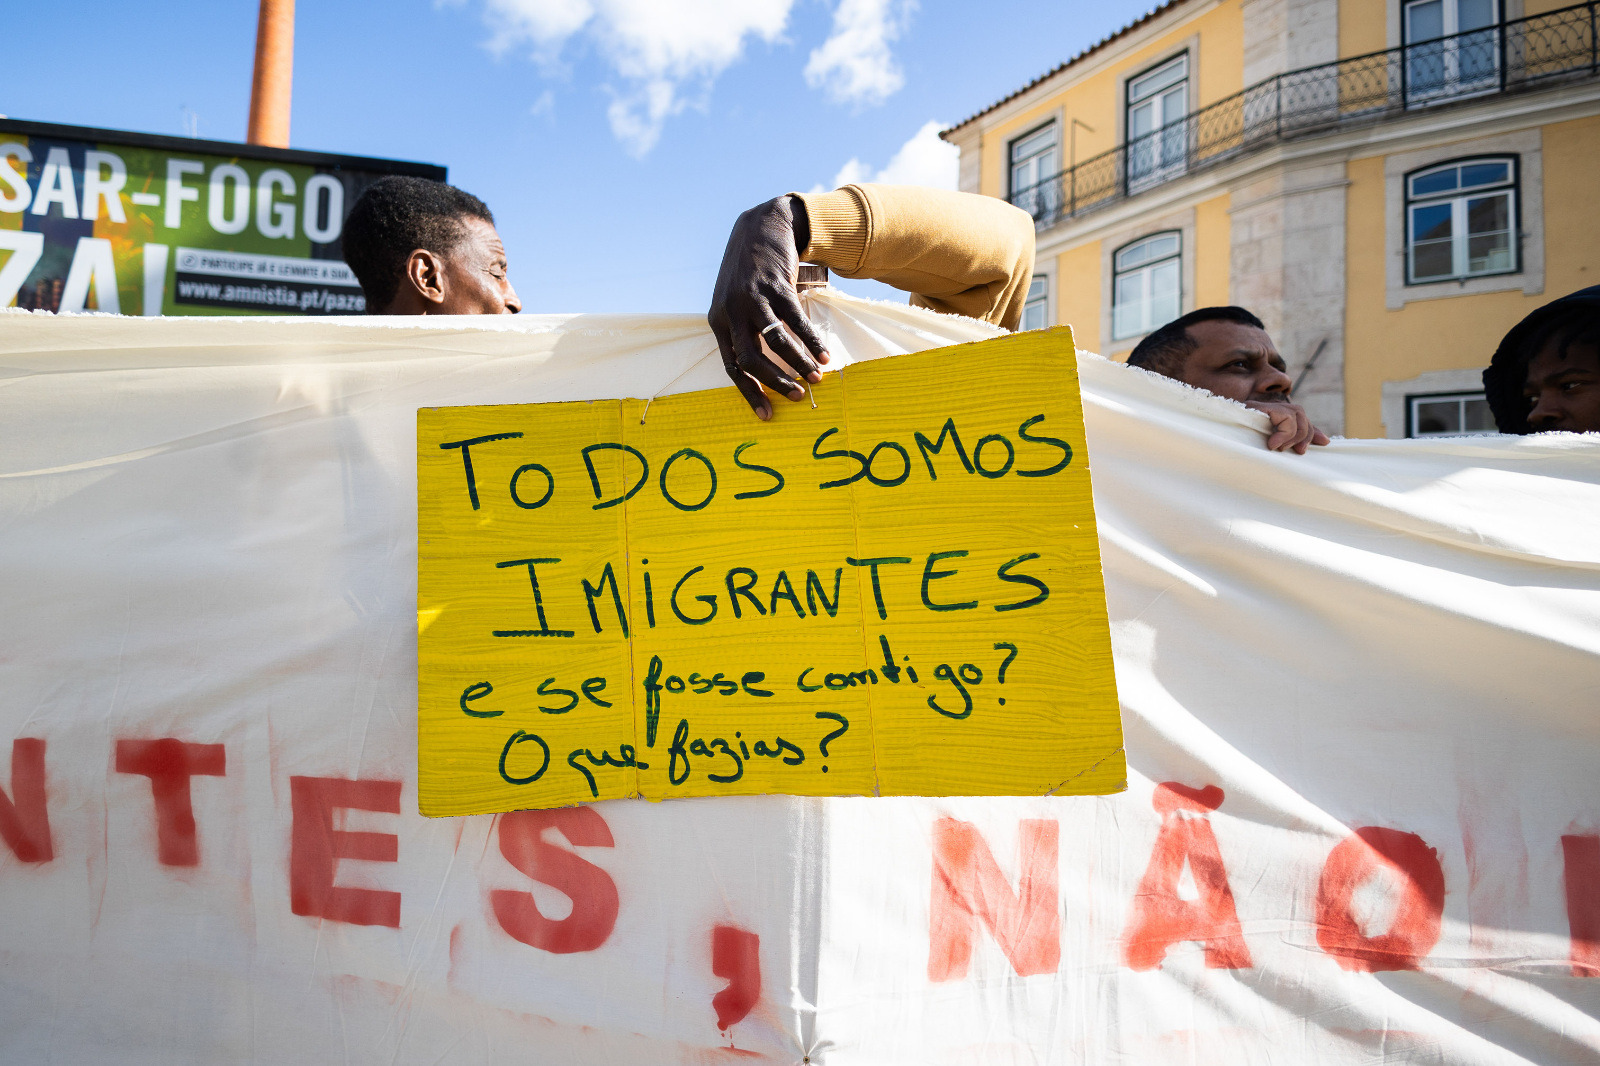 SAR-FOGO
ZA!
PARTICIPE JÁ E LEVANTE A SUA
www.amnistia.pt/paze
TODOS SOMOS
IMIGRANTES
e se fosse comtigo?
O que fazias?
NTES, NÃO